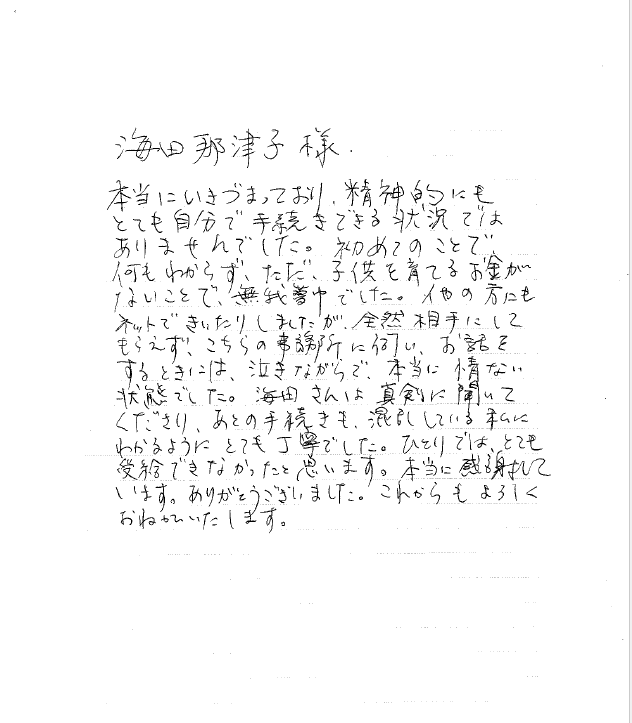 海田那津子様.
本当にいきづまっており、精神的にも
とても自分で手続きできる状況では
ありませんでした。初めてのことで、
何もわからず、ただ、子供を育てるお金が
ないことで、無我夢中でした。他の方にも
ネットできいたりしましたが、全然相手にして
もらえず、こちらの事務所に伺い、お話を
するときには、泣きながらで、本当に情ない
状態でした。海田さんは真剣に聞いて
くださり、あとの手続きも、混乱している私に
わかるようにとても丁寧でした。ひとりでは、とても
受給できなかったと思います。本当に感謝して
います。ありがとうございました。これからもよろしく
おねがいいたします。